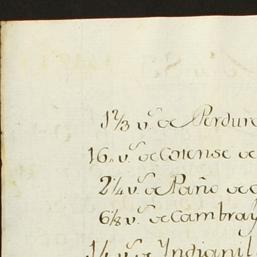 1⅔ v.ˢ de Perdur
16„ v.ˢ de Cotense de
2¼ v.ˢ de Paño de
6⅛ v.ˢ de Cambray
½ v.ˢ de Indianil